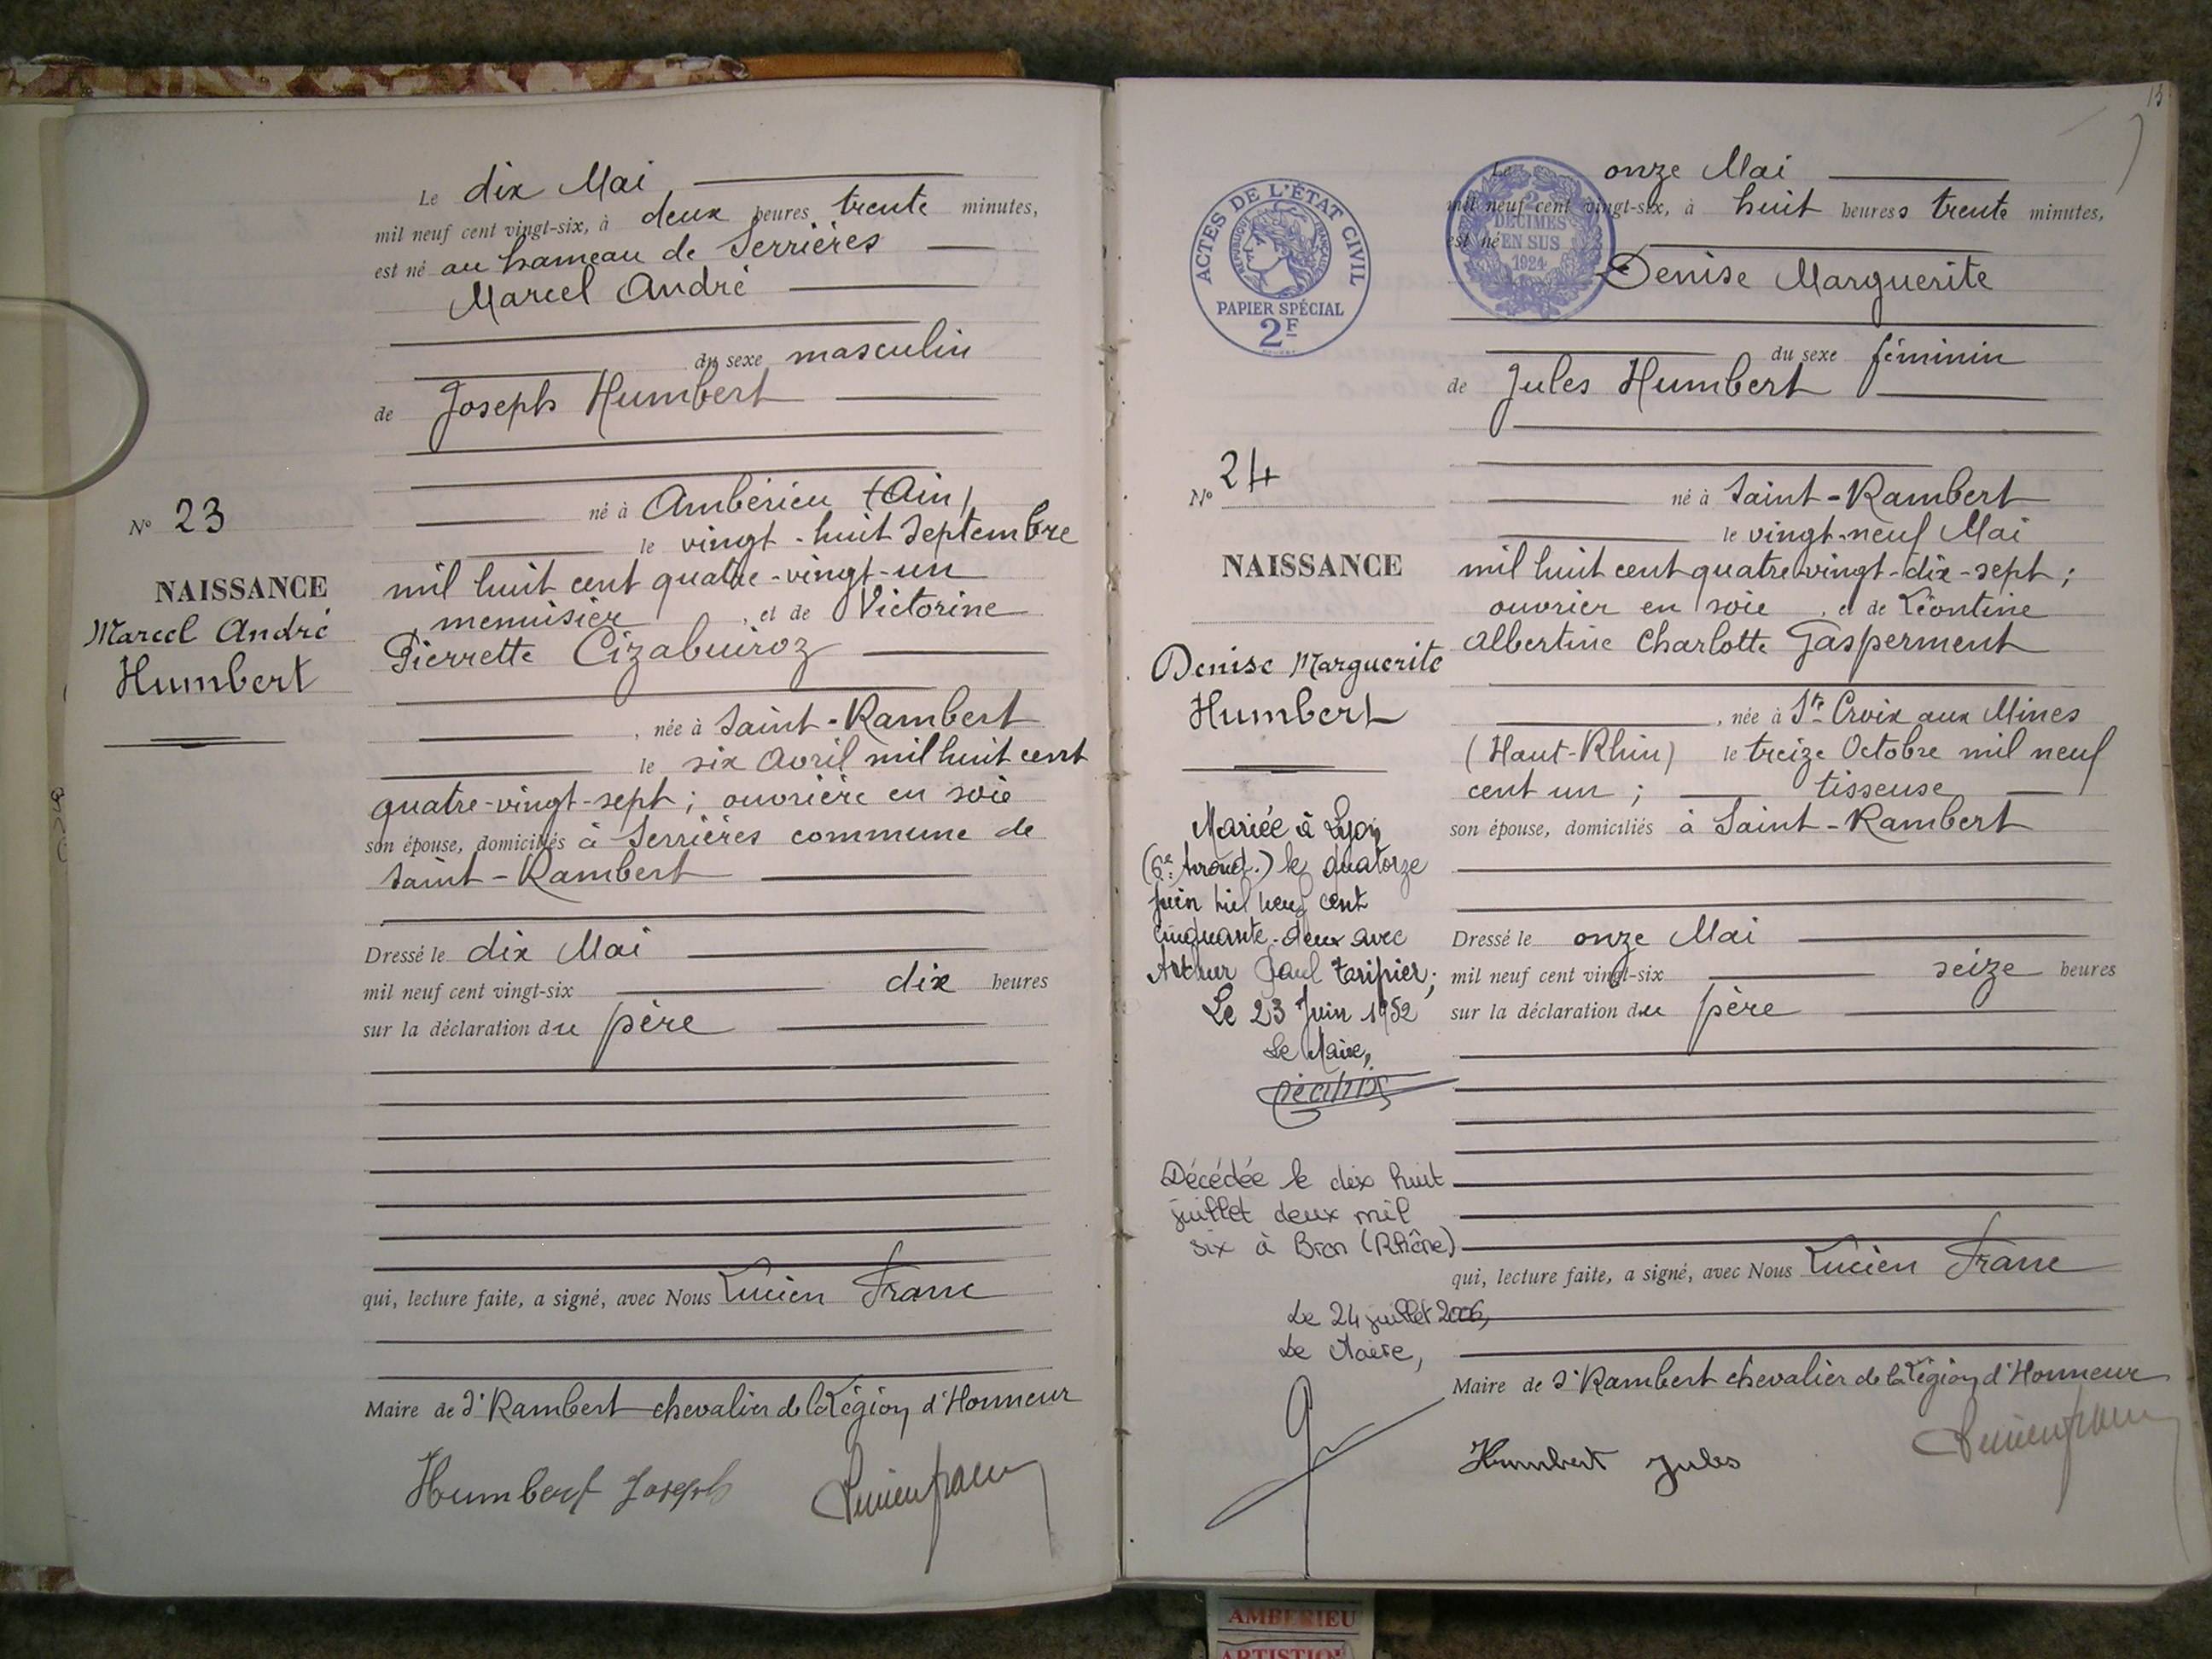 Le dix Mai
mil neuf cent vingt-six, à deux heures trente minutes,
est né au hameau de Serrières
Marcel André
du sexe masculin
de Joseph Humbert
né à Ambérieu (Ain)
le vingt-huit Septembre
mil huit cent quatre-vingt-un
, menuisier , et de Victorine
Pierrette Cizabuiroz
, née à Saint-Rambert
le six Avril mil huit cent
quatre-vingt-sept ; ouvrière en soie
son épouse, domiciliés à Serrières commune de
Saint-Rambert
Dressé le dix Mai
mil neuf cent vingt-six dix heures
sur la déclaration du père
qui, lecture faite, a signé, avec Nous Lucien Franc
Maire de St Rambert chevalier de la Légion d'Honneur
Humbert Joseph
Lucien Franc
N° 23
NAISSANCE
Marcel André
Humbert
13
Le onze Mai
mil neuf cent vingt-six, à huit heures trente minutes,
est né
Denise Marguerite
du sexe féminin
de Jules Humbert
né à Saint-Rambert
le vingt-neuf Mai
mil huit cent quatre-vingt-dix-sept ;
ouvrier en soie , et de Léontine
Albertine Charlotte Gasperment
, née à Ste Croix aux Mines
(Haut-Rhin) le treize Octobre mil neuf
cent un ; tisseuse
son épouse, domiciliés à Saint-Rambert
Dressé le onze Mai
mil neuf cent vingt-six seize heures
sur la déclaration du père
qui, lecture faite, a signé, avec Nous Lucien Franc
Maire de St Rambert chevalier de la Légion d'Honneur
Humbert Jules
Lucien Franc
ACTES DE L'ÉTAT CIVIL
RÉPUBLIQUE FRANÇAISE
PAPIER SPÉCIAL
2F
2
DÉCIMES
EN SUS
1924
N° 24
NAISSANCE
Denise Marguerite
Humbert
Mariée à Lyon
(6e Arrond.) le quatorze
juin mil neuf cent
cinquante-deux avec
Arthur Paul Taripier ;
Le 23 Juin 1952
Le Maire,
Décédée le dix huit
juillet deux mil
six à Bron (Rhône)
Le 24 juillet 2006,
Le Maire,
AMBERIEU